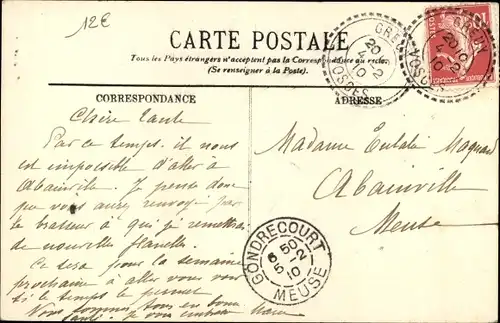 12€
CARTE POSTALE
Tous les Pays étrangers n'acceptent pas la Correspondance au recto.
(Se renseigner à la Poste).
CORRESPONDANCE
ADRESSE
Chère tante
Par ce temps, il nous
est impossible d'aller à
Abainville. Je pense donc
que vous aurez renvoyé par
le à qui je remettrai
de nouvelles flanelles.
Ce sera pour la semaine
prochaine à aller vous voir
si le temps le permet
Nous sommes tous en bonne
santé. Je vous embrasse
Madame Eulalie Magnard
Abainville
Meuse
GONDRECOURT
6 50
5 -2
10
MEUSE
20
4 2
10
10
20
4 2
10